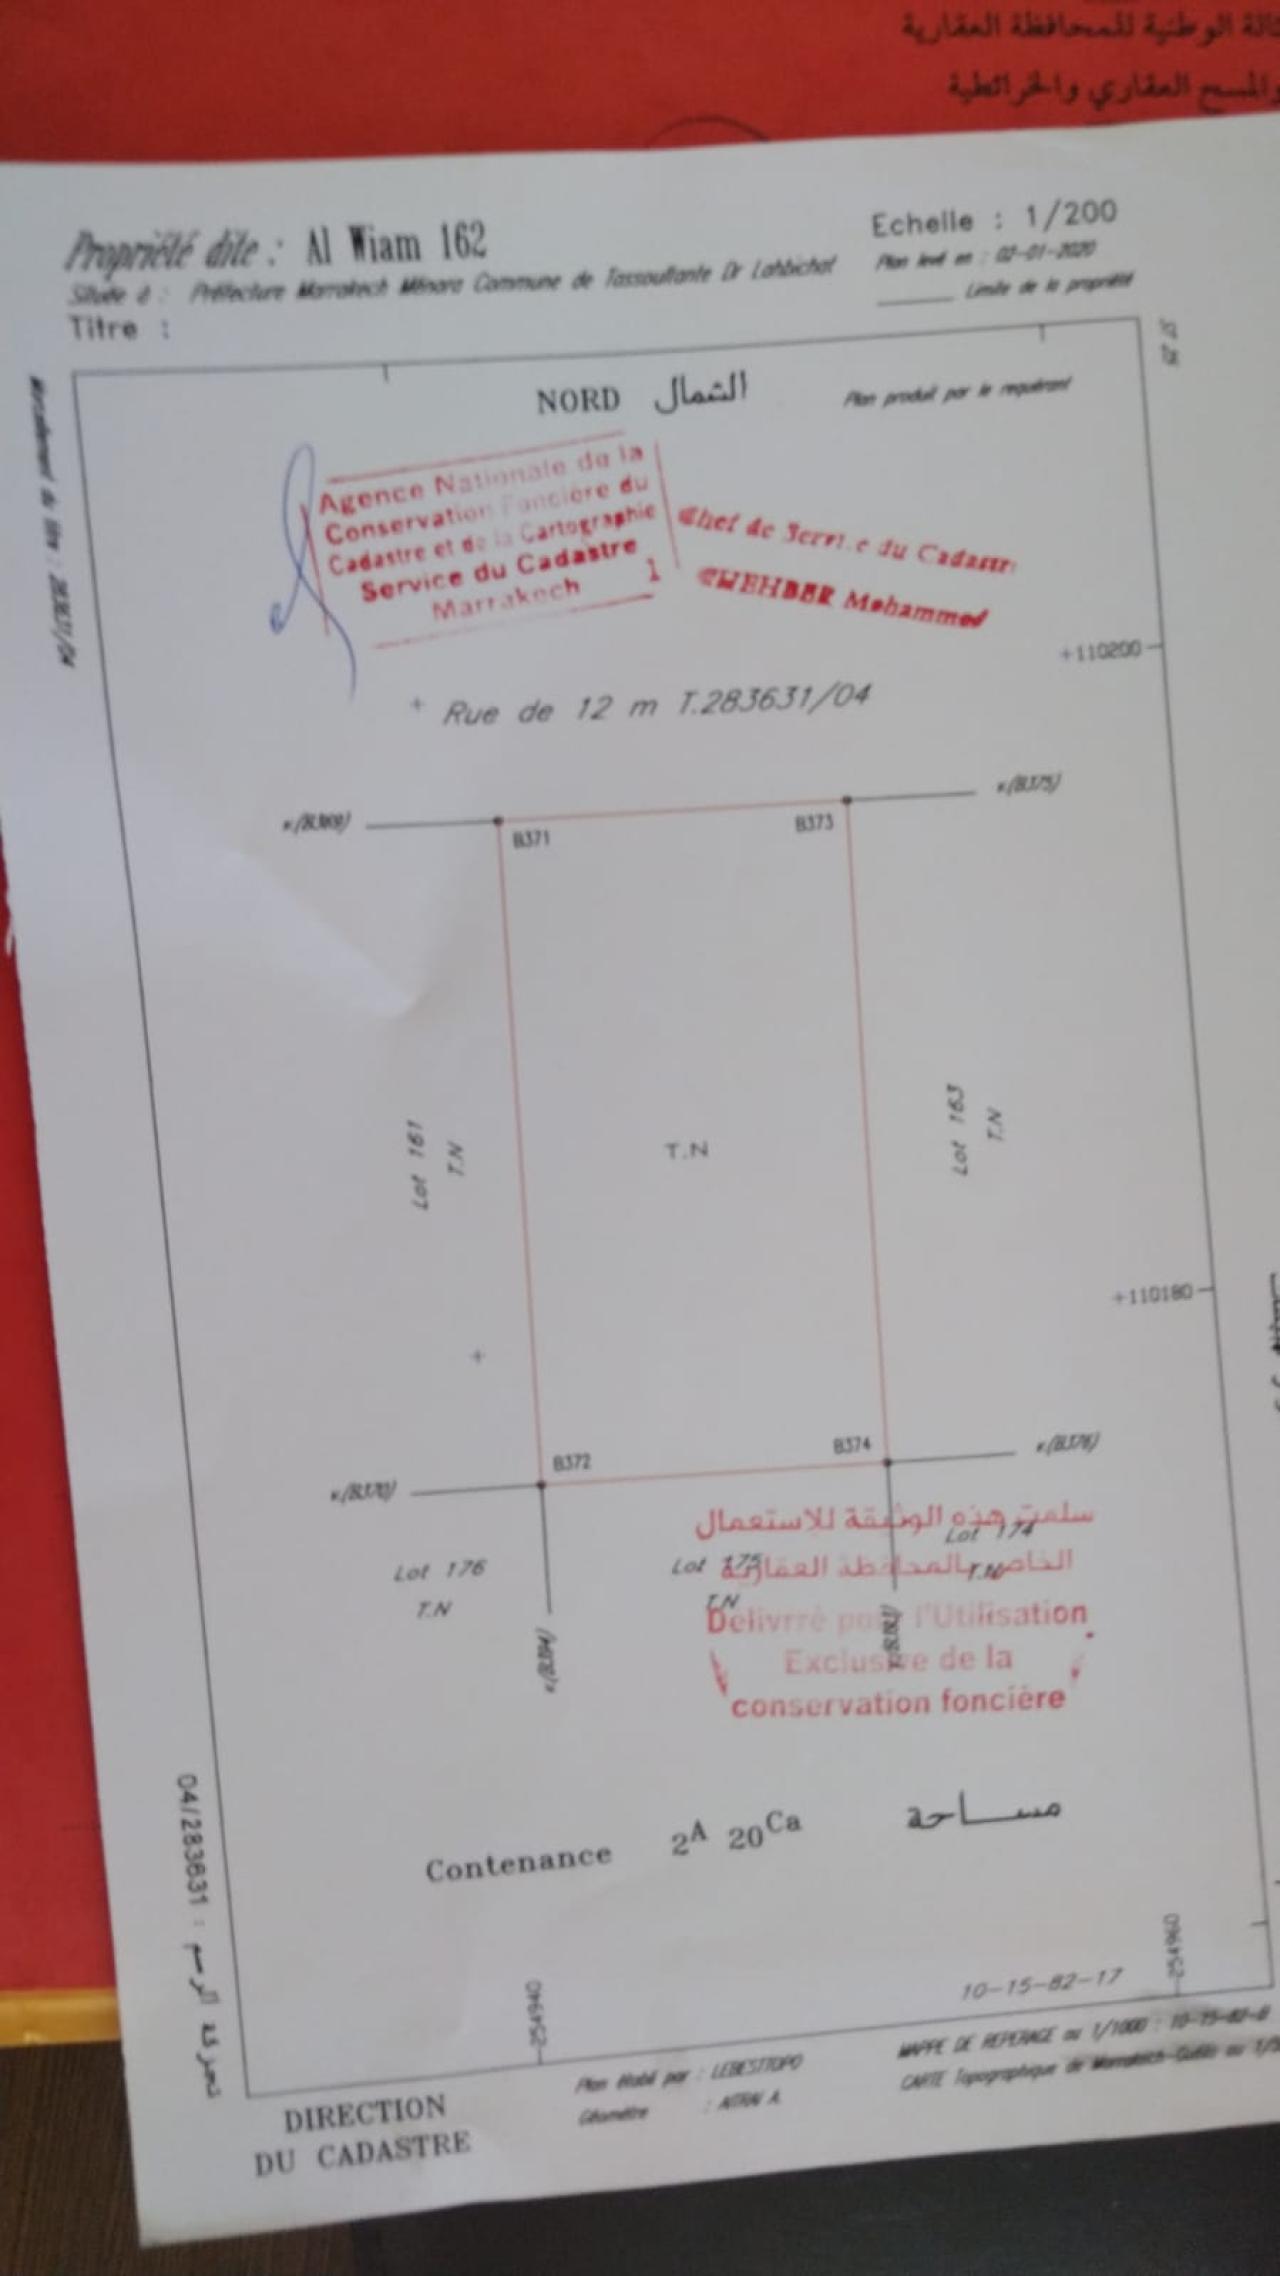 الوطنية للمحافظة العقارية
والمسح العقاري والخرائطية
Propriété dite : Al Wiam 162
Située à : Préfecture Marrakech Ménara Commune de Tassoultante Dr Lahbichat
Titre :
Echelle : 1/200
Plan levé en : 02-01-2020
Limite de la propriété
Morcellement du titre : 283631/04
NORD الشمال
Plan produit par le requérant
Agence Nationale de la
Conservation Foncière du
Cadastre et de la Cartographie
Service du Cadastre
Marrakech 1
Chef de Service du Cadastre
Mohammed
+110200
Rue de 12 m T.283631/04
v.(B369)
v.(B375)
B371
B373
Lot 161
T.N
T.N
Lot 163
T.N
+110180
B372
B374
v.(B370)
v.(B376)
سلمت هذه الوثيقة للاستعمال
الخاص بالمحافظة العقارية
Lot 174
T.N
Lot 175
T.N
Lot 176
T.N
Delivrré pour l'Utilisation
Exclusive de la
conservation foncière
Contenance 2A 20Ca مساحة
تجزئة الرسم : 04/283631
254940
254960
10-15-82-17
Plan établi par : LEBESTTOPO
Géomètre : AITRAI A.
MAPPE DE REPERAGE au 1/1000 : 10-15-82-d
CARTE Topographique de Marrakech-Guéliz au
DIRECTION
DU CADASTRE